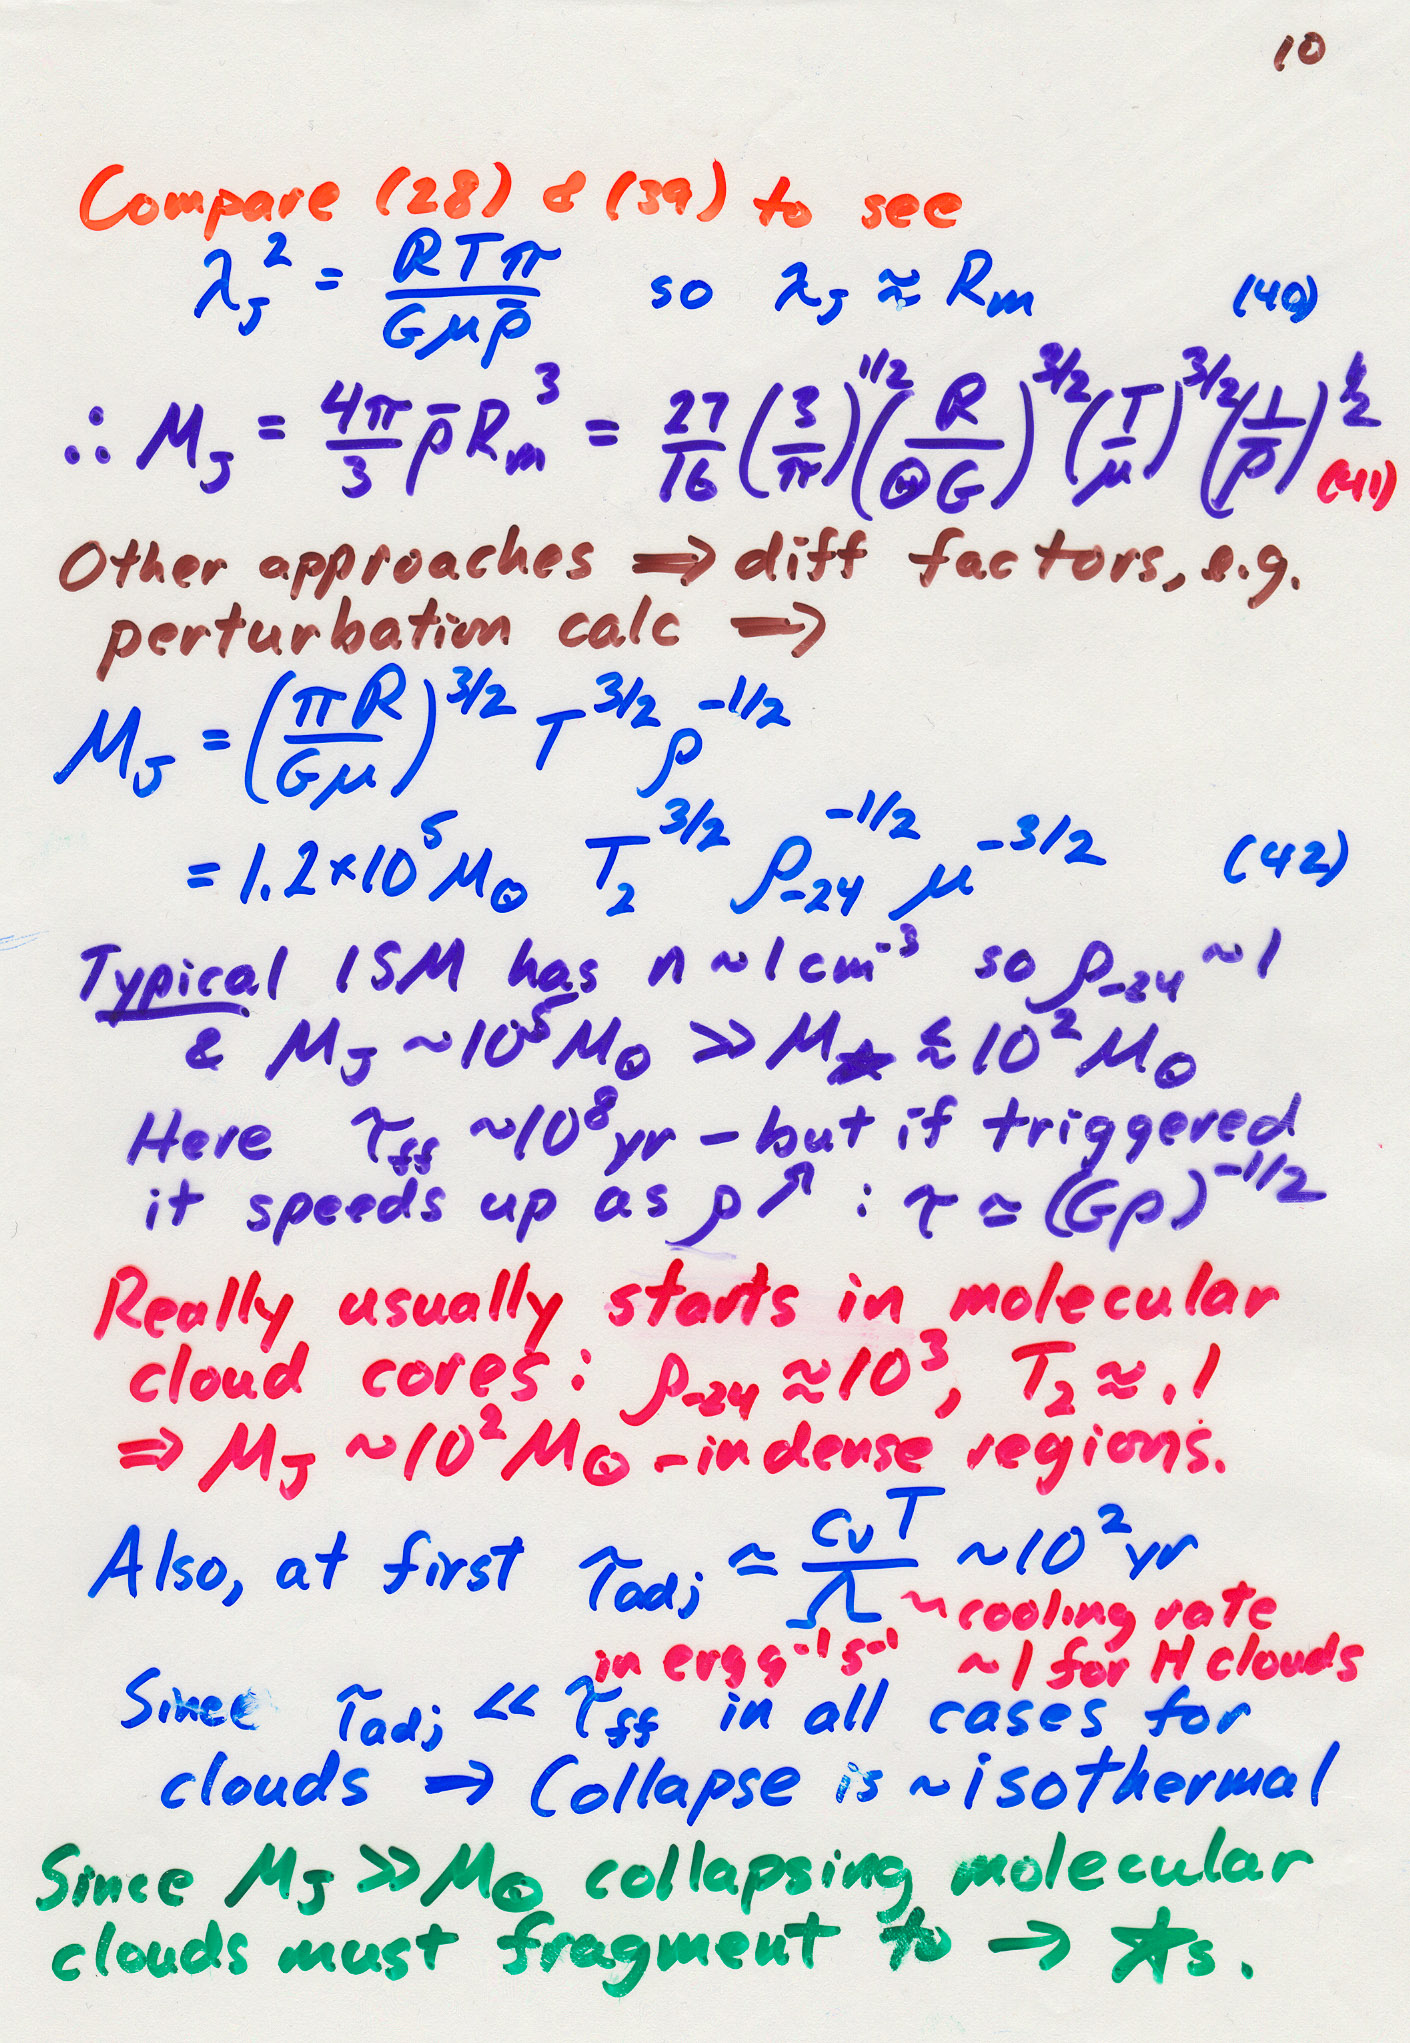 10
Compare (28) & (39) to see
λ_J² = RTπ / Gμρ̄ so λ_J ≈ R_m (40)
∴ M_J = 4π/3 ρ̄ R_m³ = 27/16 (3/π)^1/2 (R/ΘG)^3/2 (T/μ)^3/2 (1/ρ̄)^1/2 (41)
Other approaches ⇒ diff factors, e.g.
perturbation calc ⇒
M_J = (πR/Gμ)^3/2 T^3/2 ρ^-1/2
= 1.2×10⁵ M_⊙ T₂^3/2 ρ_-24^-1/2 μ^-3/2 (42)
Typical ISM has n ~ 1 cm⁻³ so ρ_-24 ~ 1
& M_J ~ 10⁵ M_⊙ >> M_★ ≲ 10² M_⊙
Here τ_ff ~ 10⁸ yr – but if triggered
it speeds up as ρ↗ : τ ≃ (Gρ)^-1/2
Really usually starts in molecular
cloud cores: ρ_-24 ≈ 10³, T₂ ≈ .1
⇒ M_J ~ 10² M_⊙ – in dense regions.
Also, at first τ_adj ≃ c_vT / Λ ~ 10² yr
~ cooling rate
in erg g⁻¹ s⁻¹ ~ 1 for H clouds
Since τ_adj << τ_ff in all cases for
clouds → Collapse is ~ isothermal
Since M_J >> M_⊙ collapsing molecular
clouds must fragment to → ★s.